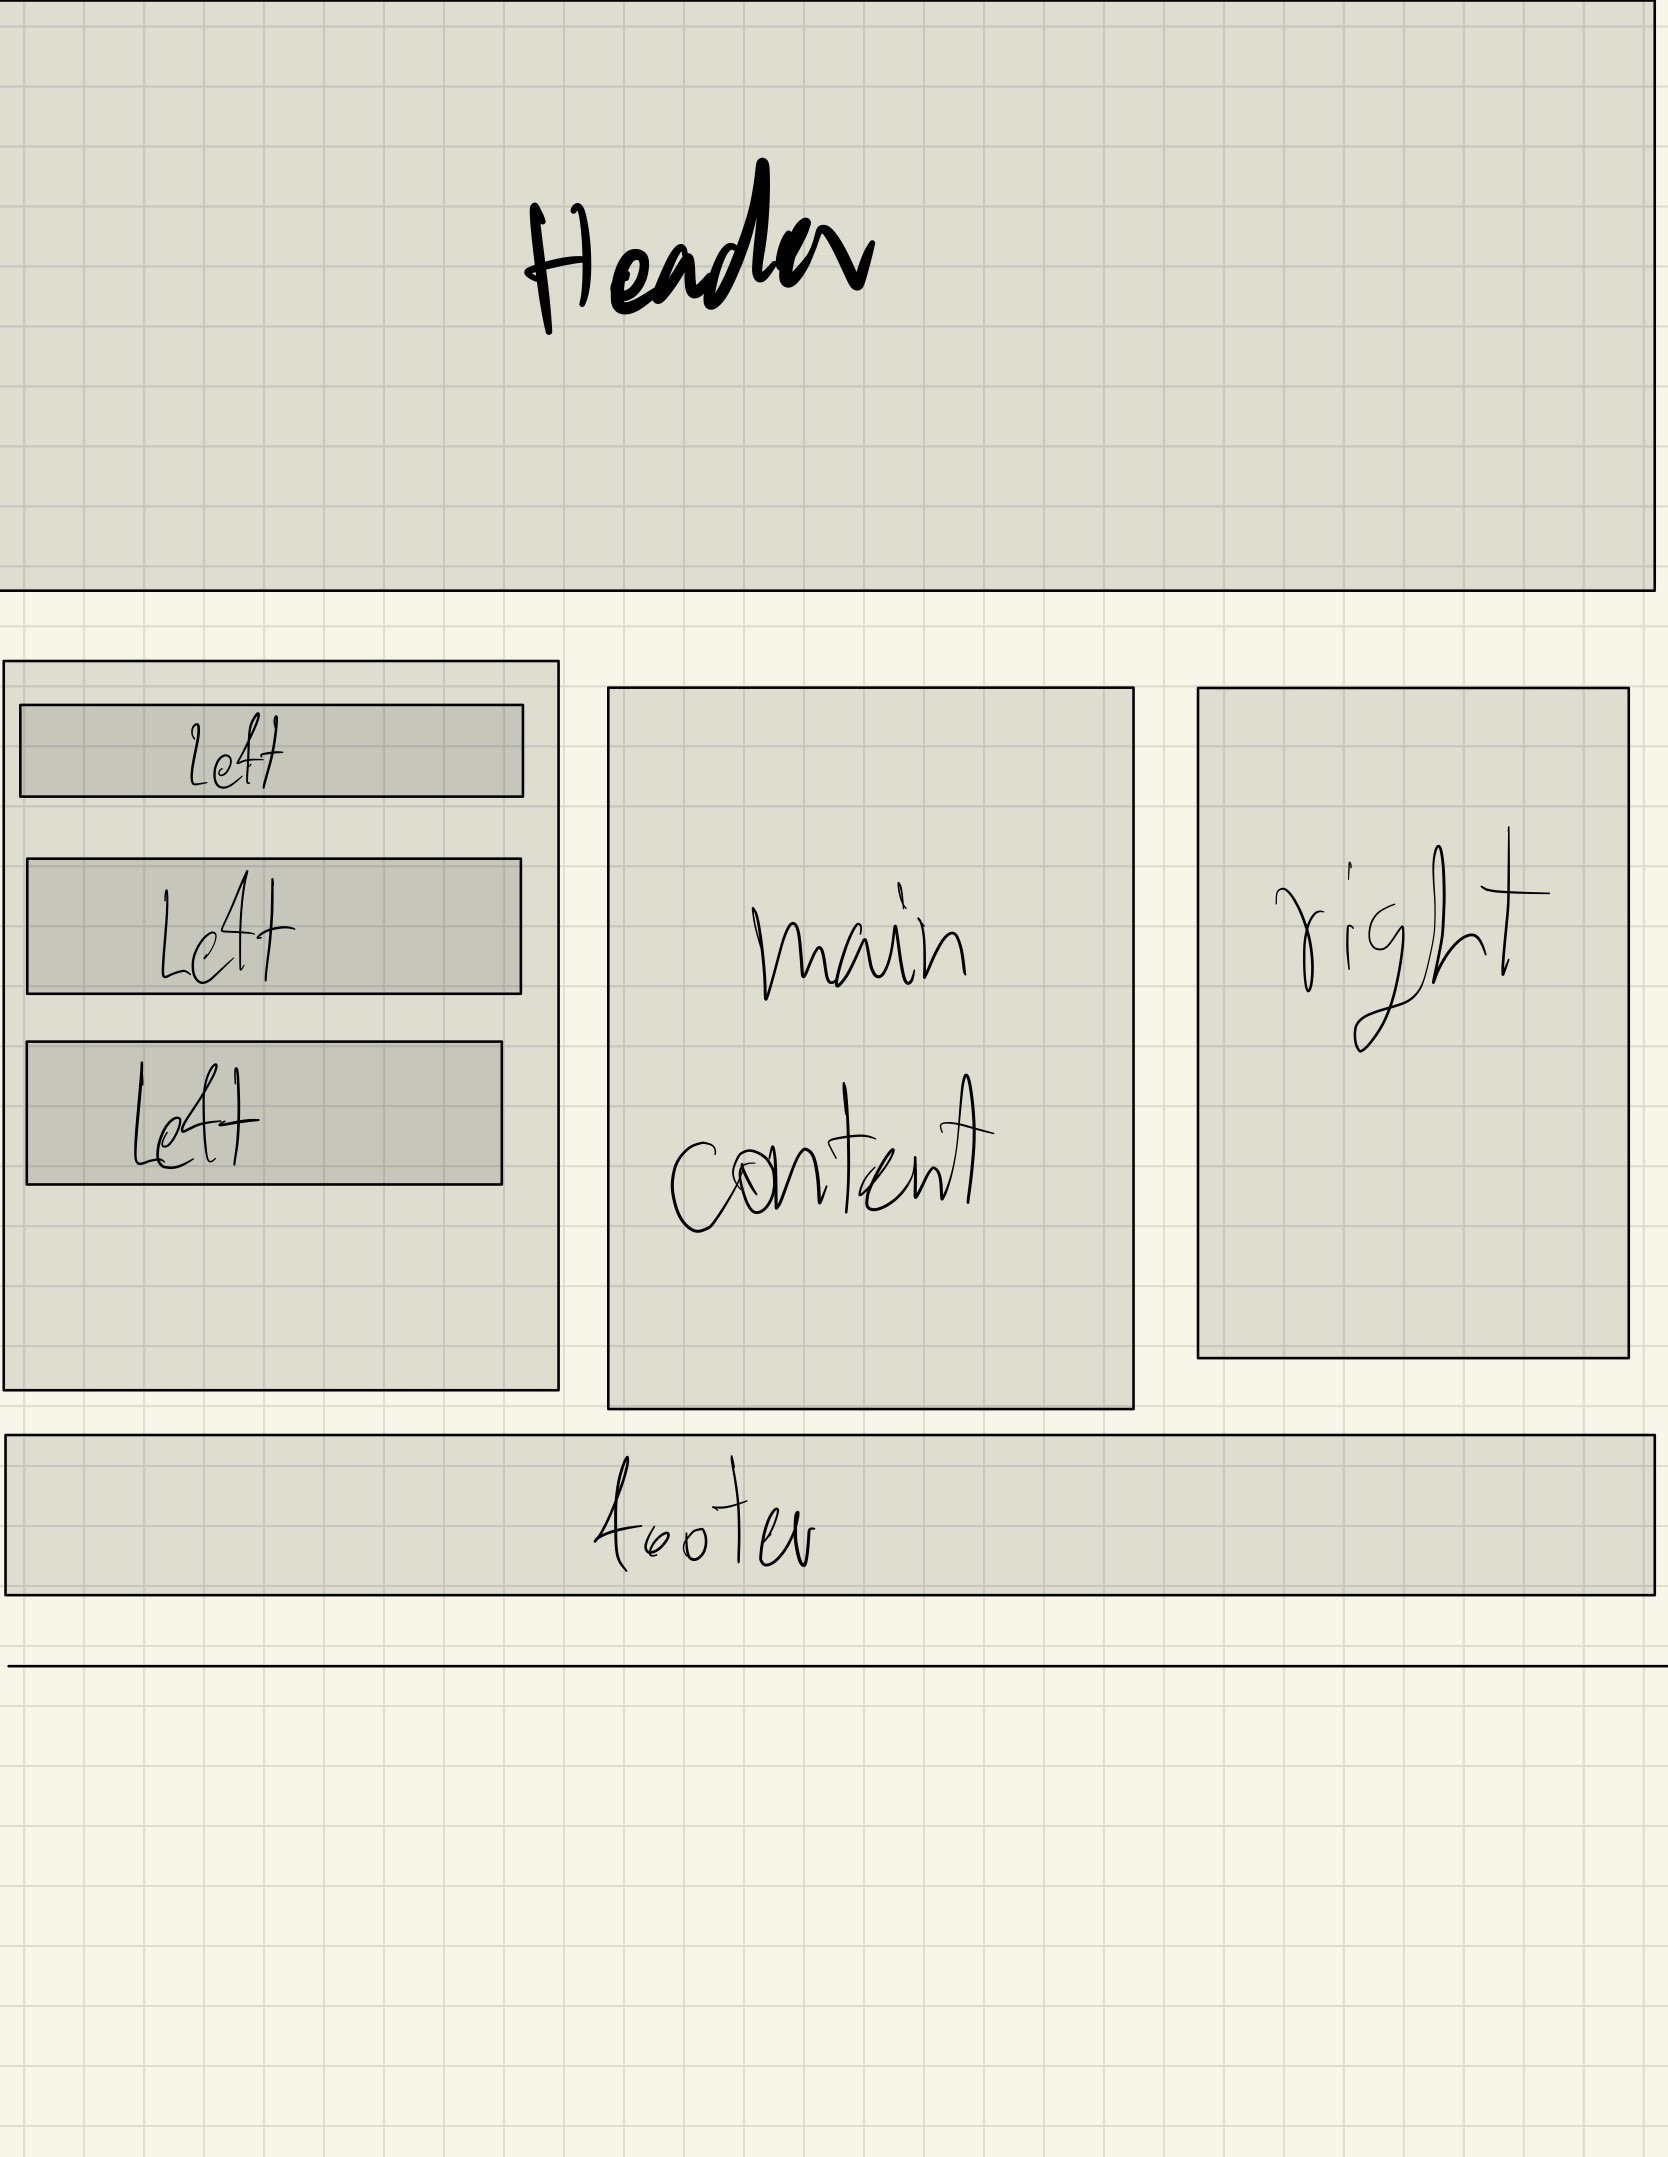 Header
Left
Left
Left
main
content
right
footer